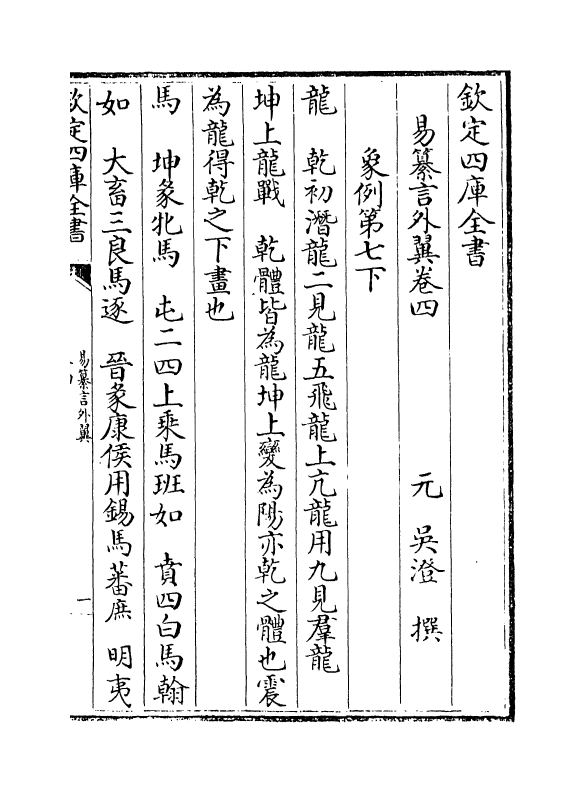 欽定四庫全書
易纂言外翼卷四
元 吳澄 撰
象例第七下
龍 乾初潛龍二見龍五飛龍上亢龍用九見羣龍
坤上龍戰 乾體皆為龍坤上變為陽亦乾之體也震
為龍得乾之下畫也
馬 坤彖牝馬 屯二四上乘馬班如 賁四白馬翰
如 大畜三良馬逐 晉彖康侯用錫馬蕃庶 明夷
欽定四庫全書
易纂言外翼
一